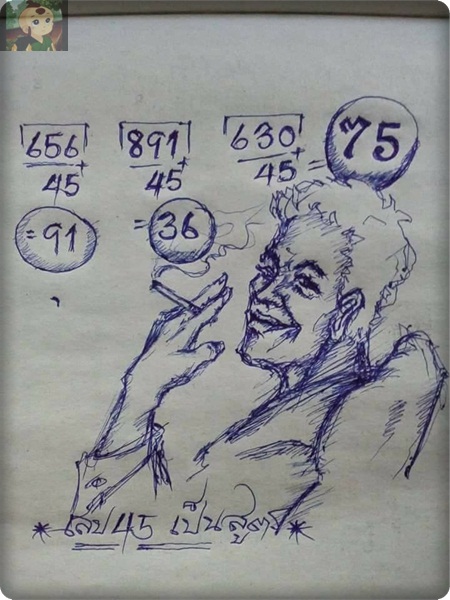 656 891 630 75
45 + 45 + 45 + =
= 91 = 36
* เลข 45 เป็นสูตร *